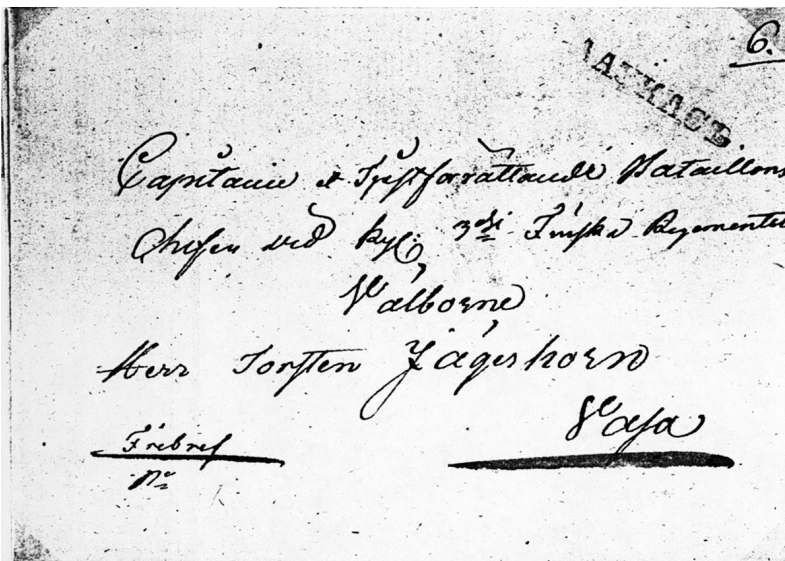 6.
Capitaine et Tjenstförrättande Bataillons
Chefen ved Kejs: 3dje Finska Regementet
Välborne
Herr Torsten Jägerhorn
Vasa
Fribref
No